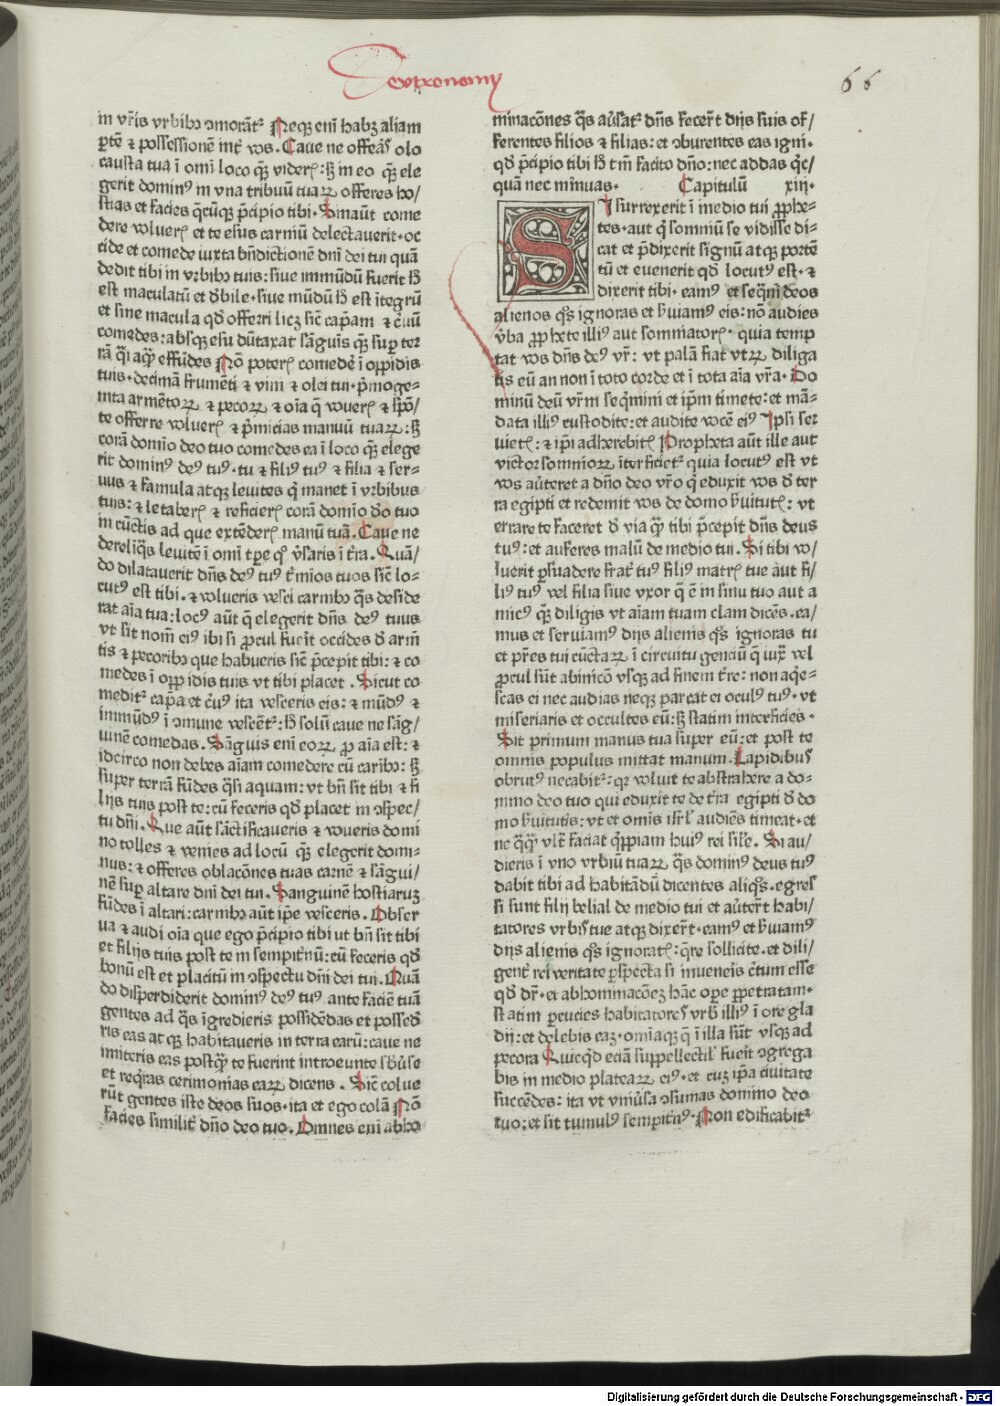 Deutronomy
66
in vr̄is vrbibꝫ ɔmorāt᷑ Neqꝫ eni habꝫ aliam
ꝑtē ⁊ possessionē int̄ vos. Caue ne offeras olo
causta tua ī omī loco quē viderꝭ: sꝫ in eo quē ele
gerit dominꝰ in vna tribuū tuaꝝ offeres ho/
stias et facies q̄cūqꝫ p̄cipio tibi. Sinaūt come
dere volueris et te esus carniū delectauerit. oc
cide et comede iuxta bn̄dictionē dn̄i dei tui quā
dedit tibi in vrbibꝫ tuis: siue immūdū fuerit hͦ
est maculatū et debile. siue mūdū hͦ est ītegrū
et sine macula qd̄ offerri licꝫ sic̄ cap̄am ⁊ c̄uū
comedes: absqꝫ esu dūtaxat sāguis quē suꝑ ter
rā q̄si aquā effūdes Nō poteris comedē ī oppidis
tuis. decimā frumēti ⁊ vini ⁊ olei tui. p̄moge-
nita armētoꝝ ⁊ pecoꝝ ⁊ oīa q̄ voueris ⁊ spōt̄/
te offerre volueris ⁊ p̄micias manuū tuaꝝ: sꝫ
corā domīo deo tuo comedes ea ī loco quē elege
rit dominꝰ deꝰ tuꝰ. tu ⁊ filiꝰ tuꝰ ⁊ filia ⁊ ser-
uus ⁊ famula atqꝫ leuites qui manet ī vrbibus
tuis: ⁊ letaberis ⁊ reficieris corā domīo deo tuo
in cūctis ad que extēderis manū tuā. Caue ne
derelīqs leuitē ī omī tꝑe quo v̄saris ī t̄ra. Quā/
do dilatauerit dn̄s deꝰ tuꝰ t̄mios tuos sic̄ lo-
cutꝰ est tibi. ⁊ volueris vesci carnibꝫ q̄s deside
rat aīa tua: locꝰ aūt quē elegerit dn̄s deꝰ tuus
vt sit nom̄ eiꝰ ibi si ꝓcul fuerit occides de arm̄
tis ⁊ pecoribꝫ que habueris sic̄ p̄cepit tibi: ⁊ co
medes ī oppidis tuis vt tibi placet. Sicut co
medit᷑ cap̄a et c̄uꝰ ita vesceris eis: ⁊ mūdꝰ ⁊
immūdꝰ ī ɔmune vescēt᷑: hͦ solū caue ne sāg/
uinē comedas. Sāguis enī eoꝝ ꝓ aīa est: ⁊
idcirco non debes aīam comedere cū carībꝫ: sꝫ
super terrā fūdes q̄si aquam: vt bn̄ sit tibi ⁊ fi
lijs tuis post te: cū feceris qd̄ placet in ɔspec/
tu dn̄i. Que aūt sāctificaueris ⁊ voueris domi
no tolles ⁊ venies ad locū quē elegerit domi-
nus: ⁊ offeres oblacōnes tuas carnē ⁊ sāgui/
nē suꝑ altare dn̄i dei tui. Sanguinē hostiaruꝫ
fūdes ī altari: carnibꝫ aūt ip̄e vesceris. Obser
ua ⁊ audi oīa que ego p̄cipio tibi ut bn̄ sit tibi
et filijs tuis post te in sempit̄nū: cū feceris qd̄
bonū est et placitū in ɔspectu dn̄i dei tui. Quā
do disperdiderit dominꝰ deꝰ tuꝰ ante faciē tuā
gentes ad q̄s īgredieris possidēdas et possed̄
ris eas atqꝫ habitaueris in terra earū: caue ne
imiteris eas postqꝫ̄ te fuerint introeunte sb̄use
et req̄ras cerimonias eaꝝ dicens. Sic̄ colue
rūt gentes iste deos suos. ita et ego colā Nō
facies similit̄ dn̄o deo tuo. Omnes enī abho
minacōnes q̄s au̓sat᷑ dn̄s fecer̄t dijs suis of/
ferentes filios ⁊ filias: et ɔburentes eas igni.
qd̄ p̄cipio tibi hͦ tm̄ facito dn̄o: nec addas q̄c/
quā nec minuas. Capitulū xiij.
SI surrexerit ī medio tui ꝓphe-
tes. aut q̄ somniū se vidisse di-
cat et p̄dixerit signū atqꝫ portē
tū et euenerit qd̄ locutꝰ est. ⁊
dixerit tibi. eamꝰ et seq̄mr̄ deos
alienos q̄s ignoras et s̓uiamꝰ eis: nō audies
v̓ba ꝓphete illiꝰ aut somniatoris. quia temp
tat vos dn̄s deꝰ vr̄: vt palā fiat vtꝝ diliga
tis eū an non ī toto corde et ī tota aīa vr̄a. Do
minū deū vr̄m seq̄mini et ip̄m timete: et mā-
data illiꝰ custodite: et audite vocē eiꝰ Ipsi ser
uietꝭ: ⁊ ip̄i adherebitꝭ Propheta aūt ille aut
victor somnioꝝ īterficiet᷑ quia locutꝰ est vt
vos au̓teret a dn̄o deo vr̄o qui eduxit vos de ter
ra egipti et redemit vos de domo s̓uitutꝭ: vt
errare te faceret de via quā tibi p̄cepit dn̄s deus
tuꝰ: et auferes malū de medio tui. Si tibi vo/
luerit ꝑsuadere frat̄ tuꝰ filiꝰ matrꝭ tue aut fi/
liꝰ tuꝰ vel filia siue vxor q̄ ē in sinu tuo aut a
micꝰ quē diligis vt aīam tuam clam dicēs. ea/
mus et seruiamꝰ dijs alienis q̄s ignoras tu
et pr̄es tui cūctaꝝ ī circuitu genciū q̄ iuxͣ vel
ꝓcul sūt abinicō vsqꝫ ad finem t̄re: non aq̄e-
scas ei nec audias neqꝫ parcat ei oculꝰ tuꝰ. vt
miseriaris et occultes eū: sꝫ statim interficies.
Sit primum manus tua super eū: et post te
omnis populus mittat manum. Lapidibus
obrutꝰ necabit᷑: qꝛ voluit te abstrahere a do-
mino deo tuo qui eduxit te de t̄ra egipti de do
mo s̓uitutis: vt et omis isr̄l audiēs timeat. et
neqꝫ̄qꝫ̄ vlt̄ faciat q̄ppiam huiꝰ rei sil̄e. Si au/
dieris ī vno vrbiū tuaꝝ q̄s dominꝰ deus tuꝰ
dabit tibi ad habitādū dicentes aliq̄s. egres
si sunt filij belial de medio tui et au̓ter̄t habi/
tatores vrbis tue atqꝫ dixer̄t. eamꝰ et s̓uiamꝰ
dijs alienis q̄s ignoratꝭ: q̄re sollicite. et dili/
gent̄ rei veritate ꝑspecta si inueneis c̄tum esse
qd̄ dr̄. et abhominacōeꝫ hāc opere ꝑpetratam.
statim ꝑcucies habitatores vrbꝭ illiꝰ ī ore gla
dij: et delebis eaꝫ. omīaqꝫ q̄ ī illa sūt vsqꝫ ad
pecora Quicqd̄ eciā suppellectil̄ fueit ɔgrega
bis in medio plateaꝝ eiꝰ. et cuꝫ ip̄a ciuitate
succēdes: ita vt vniu̓sa ɔsumas domino deo
tuo: et sit tumulꝰ sempit̄nꝰ. Non edificabit᷑
Digitalisierung gefördert durch die Deutsche Forschungsgemeinschaft - DFG